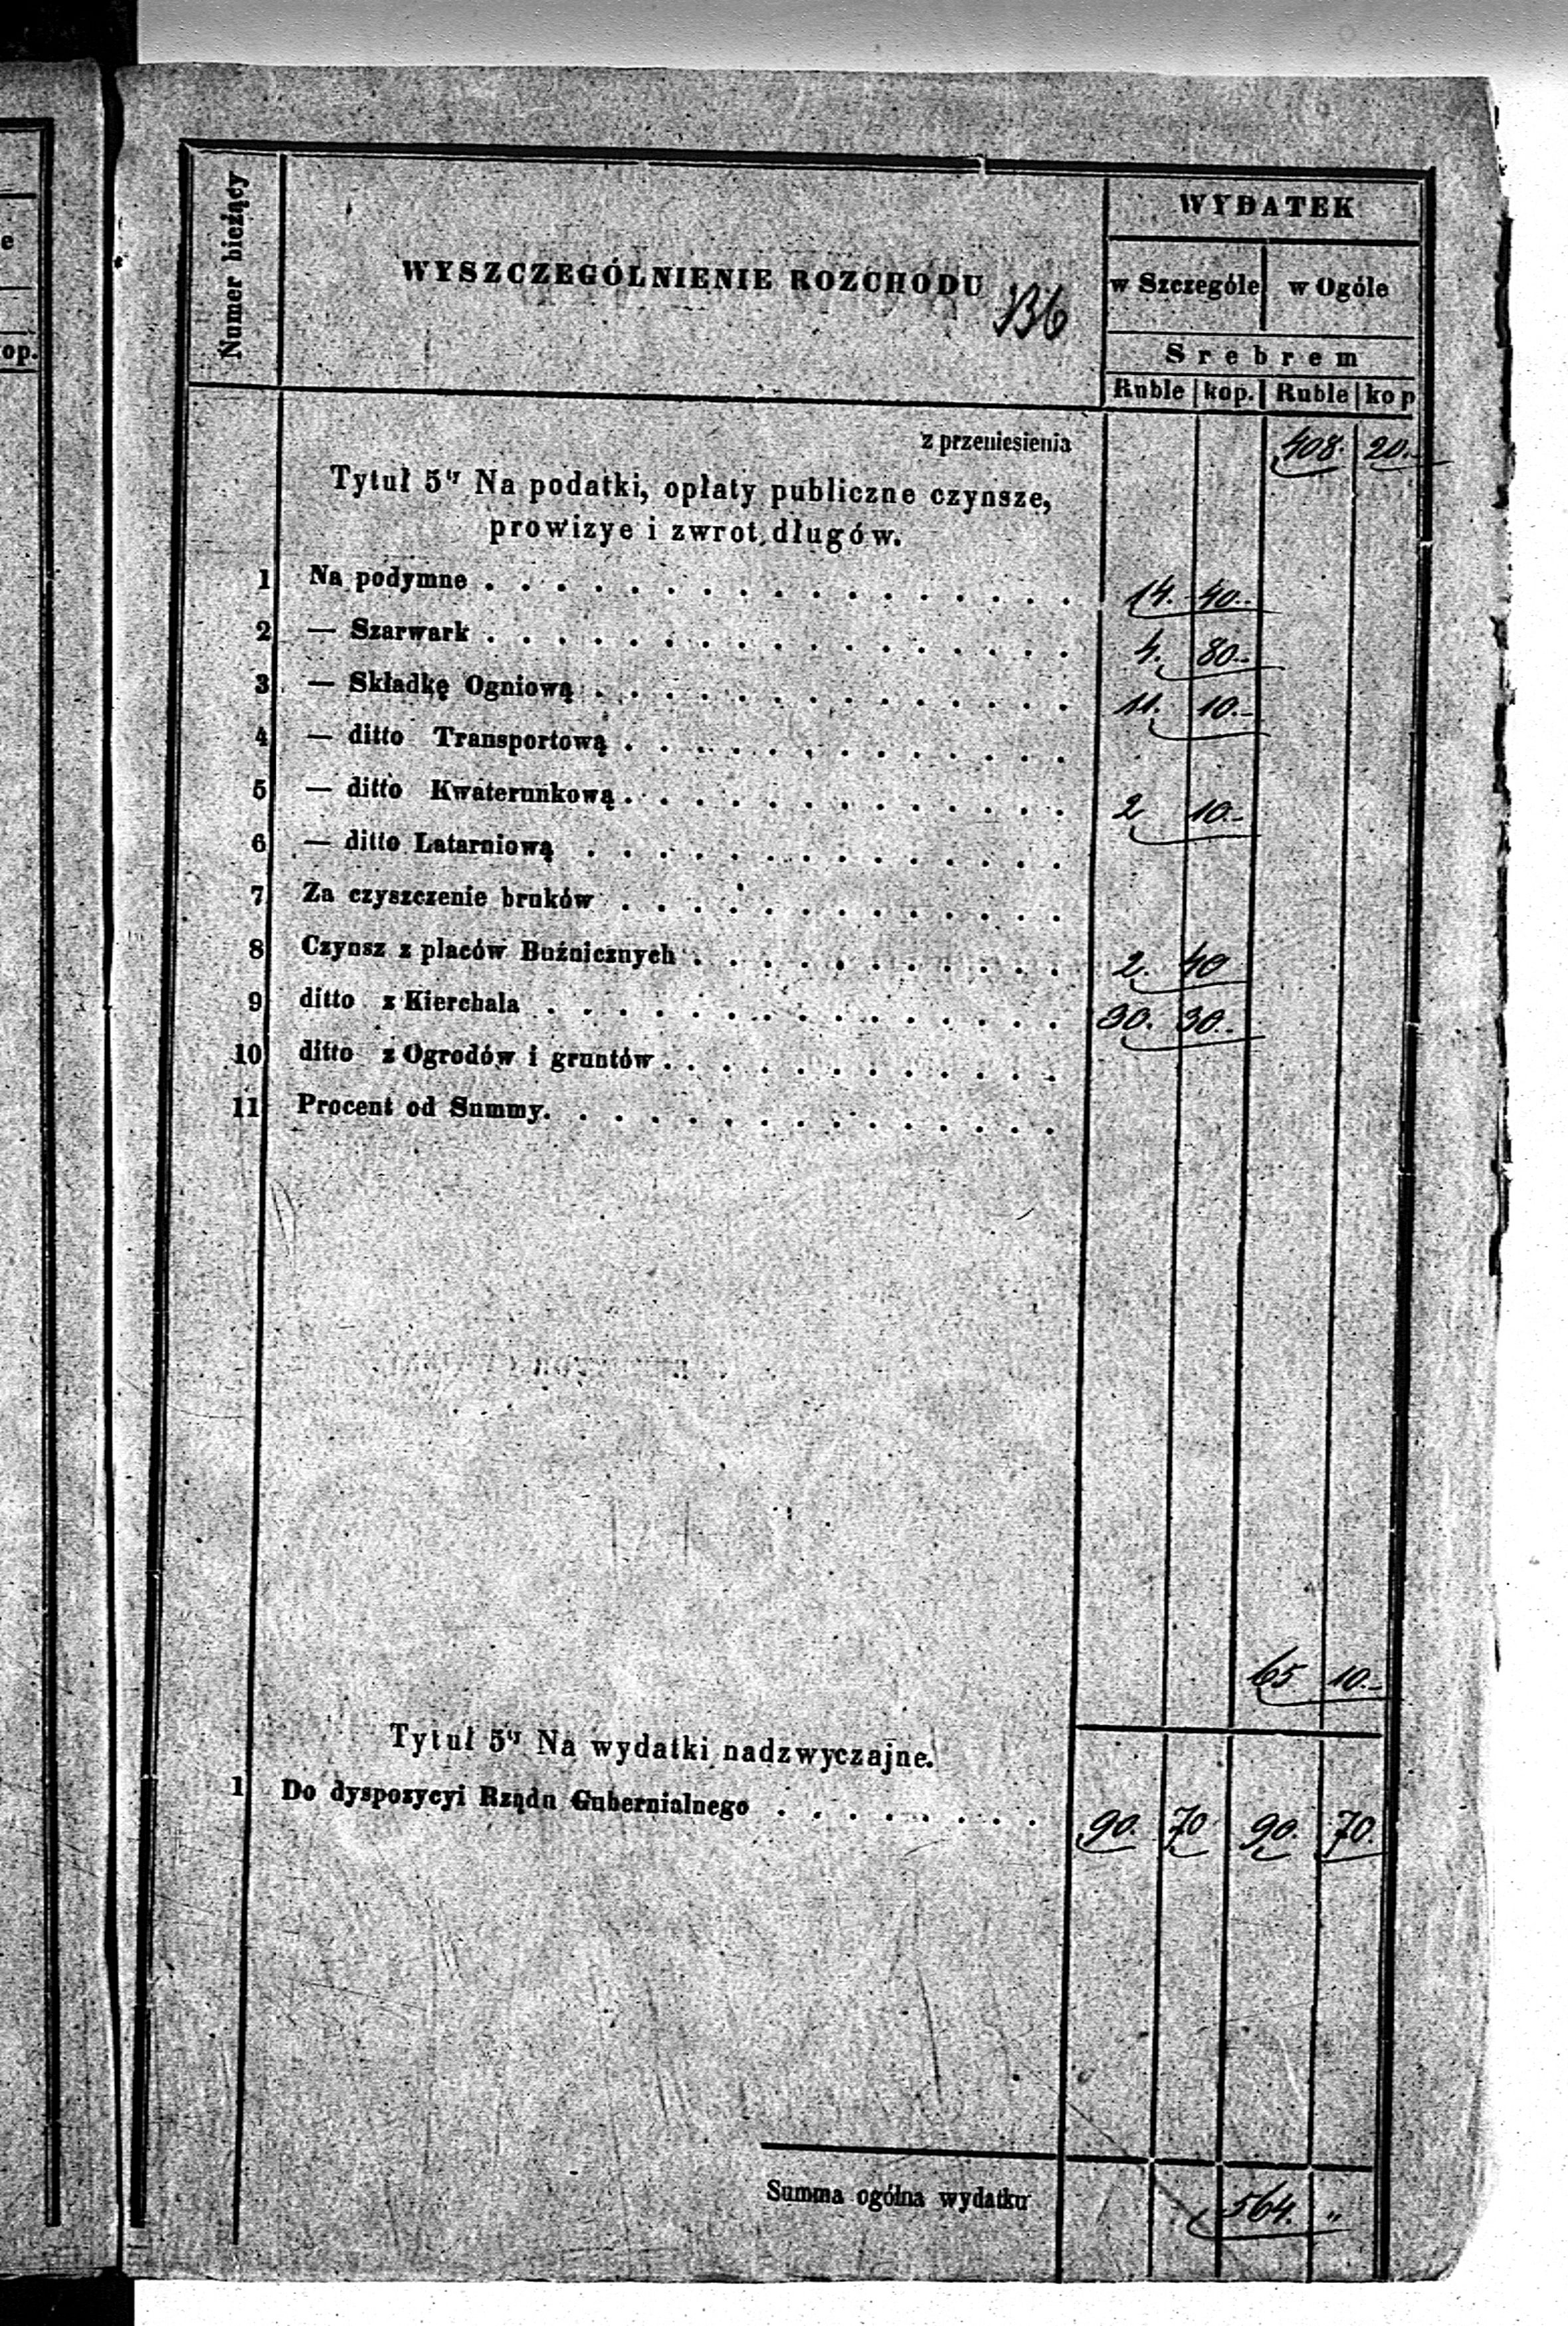 e
op.
Numer bieżący
WYSZCZEGÓLNIENIE ROZCHODU
136
WYDATEK
w Szczególe w Ogóle
Srebrem
Ruble kop. Ruble kop
z przeniesienia 408. 20.
Tytuł 5ty Na podatki, opłaty publiczne czynsze,
prowizye i zwrot długów.
1 Na podymne . . . . . 14. 40.
2 — Szarwark . . . . . 4. 80.
3 — Składkę Ogniową . . . . . 11. 10.
4 — ditto Transportową . . . . .
5 — ditto Kwaterunkową . . . . . 2 10.
6 — ditto Latarniową . . . . .
7 Za czyszczenie bruków . . . . .
8 Czynsz z placów Buźnicznych . . . . . 2. 40
9 ditto z Kierchala . . . . . 30. 30.
10 ditto z Ogrodów i gruntów . . . . .
11 Procent od Summy. . . . . .
65 10.
Tytuł 5ty Na wydatki nadzwyczajne.
1 Do dyspozycyi Rządu Gubernialnego . . . . . 90. 70 90. 70.
Summa ogólna wydatku 564. „